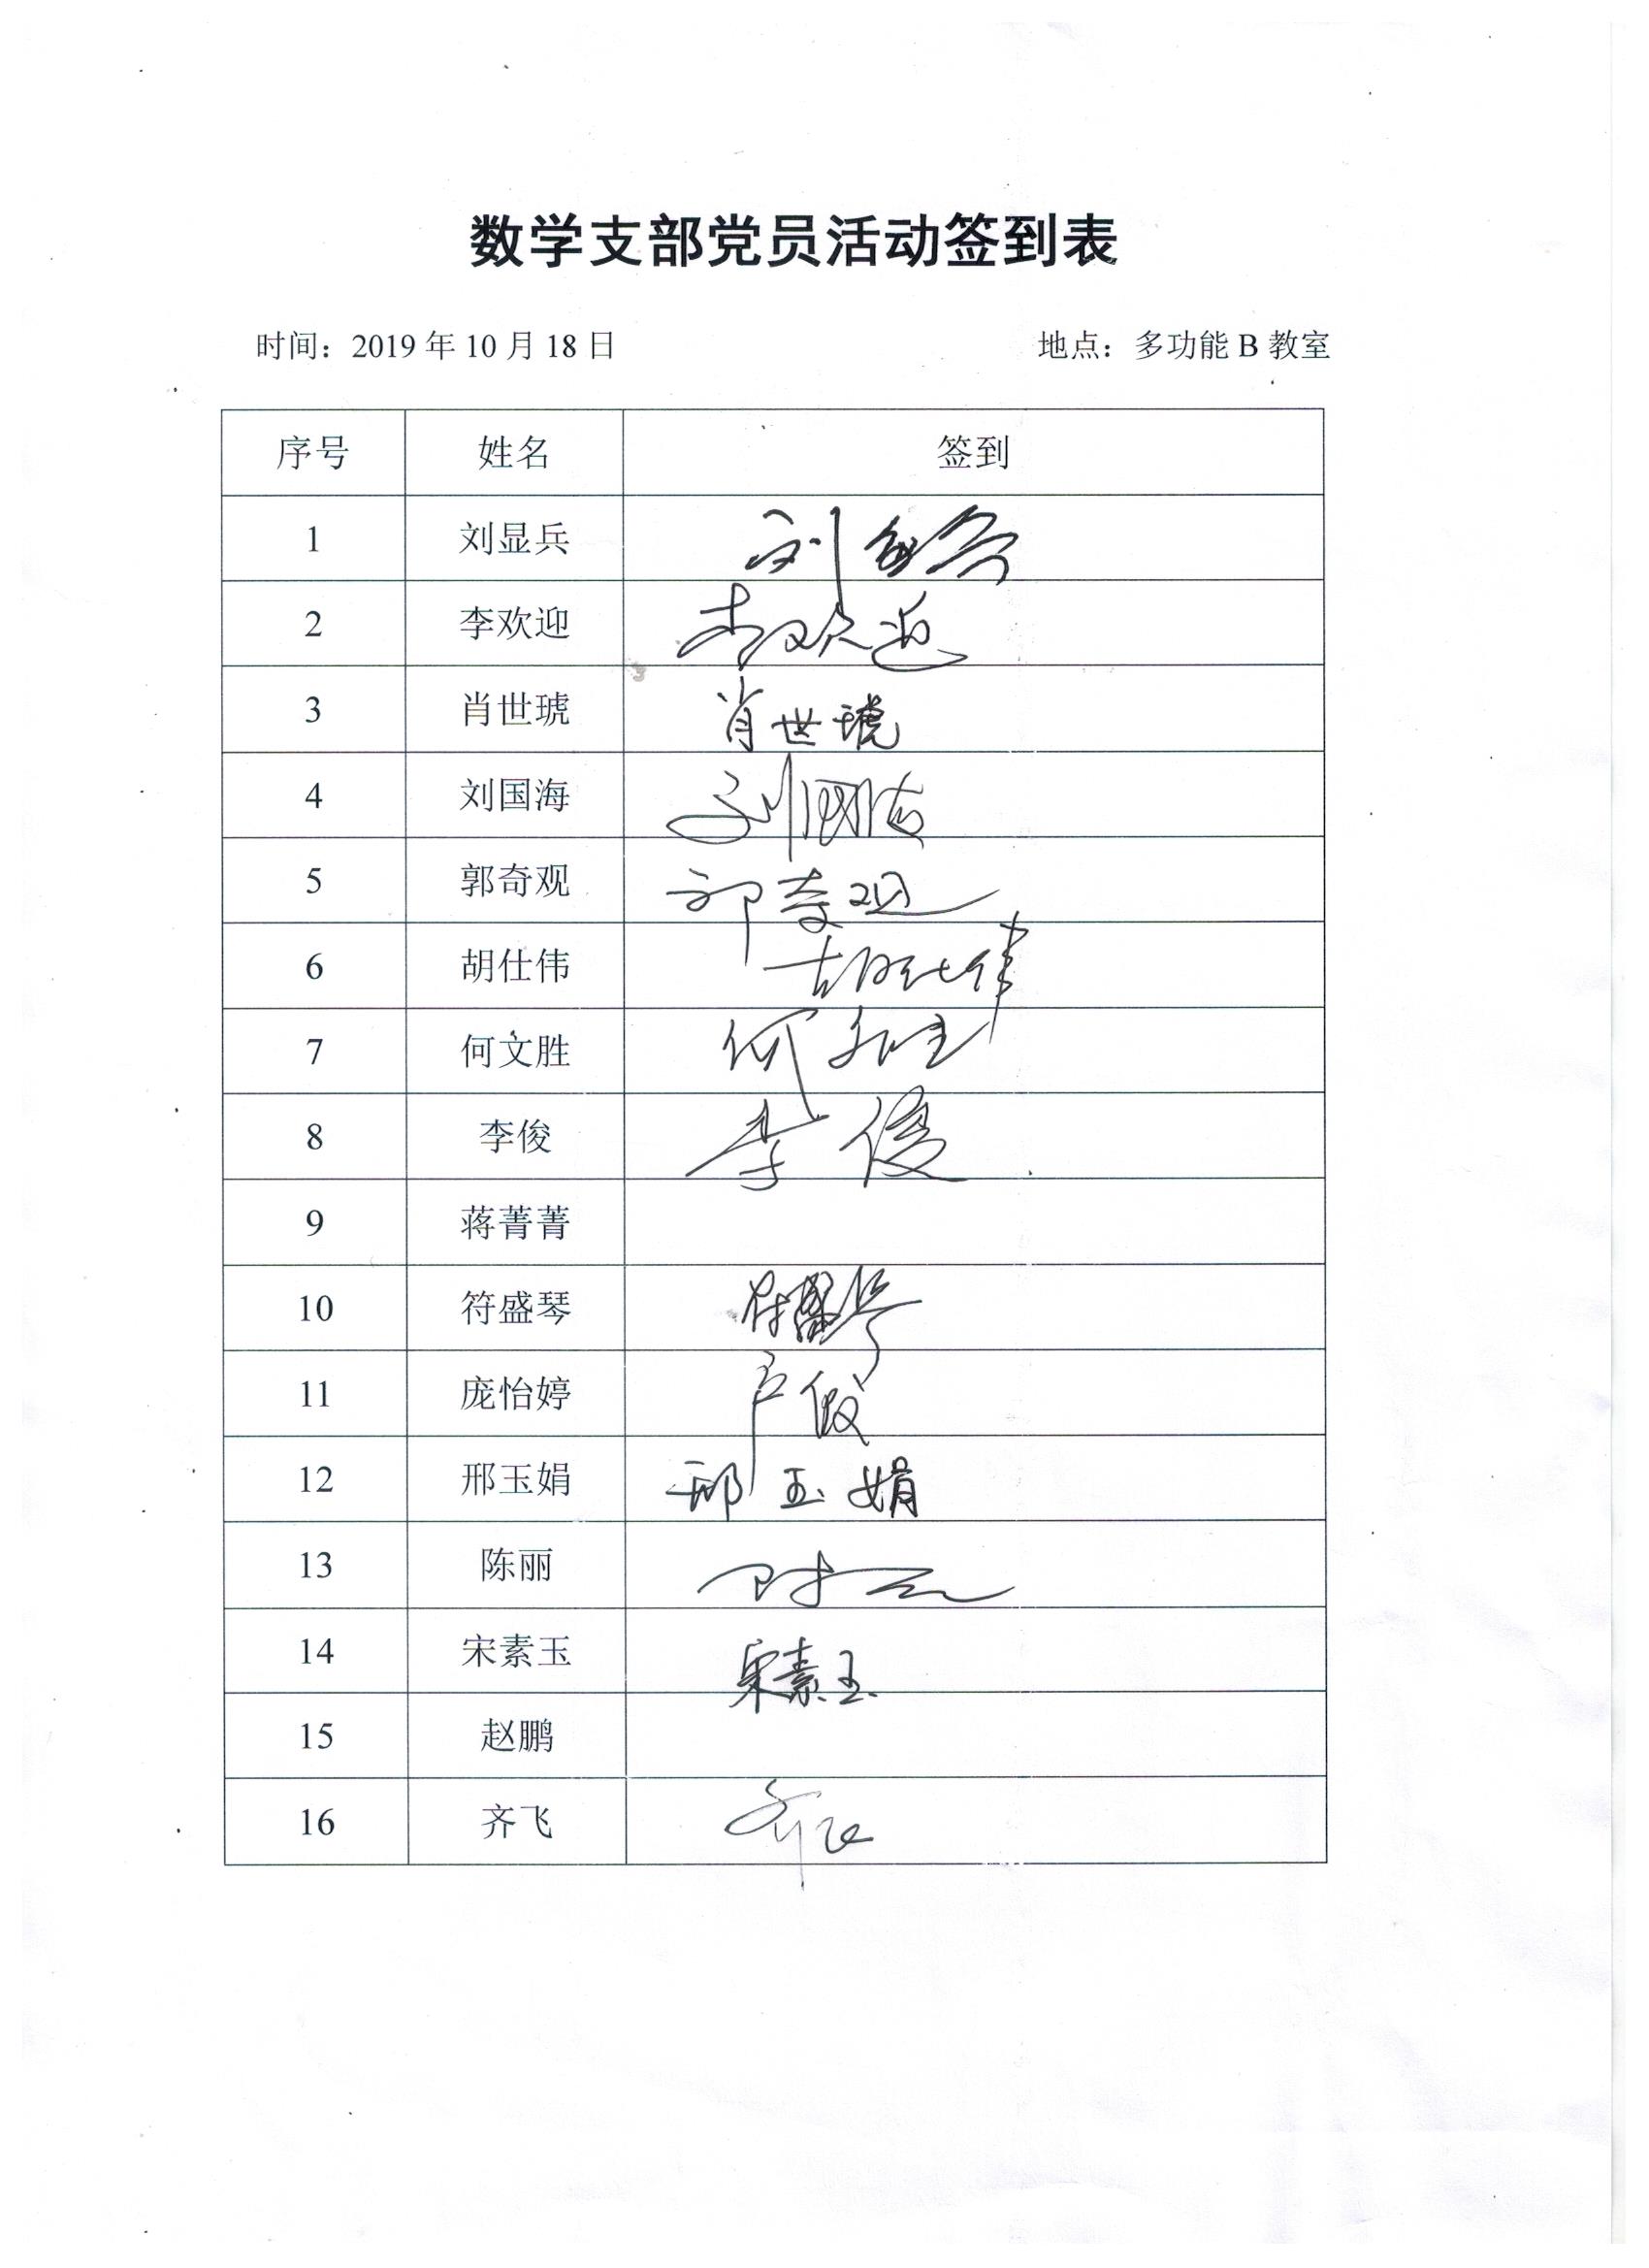 数学支部党员活动签到表
时间：2019 年 10 月 18 日 地点：多功能 B 教室
序号 姓名 签到
1 刘显兵 刘显兵
2 李欢迎 李欢迎
3 肖世琥 肖世琥
4 刘国海 刘国海
5 郭奇观 郭奇观
6 胡仕伟 胡仕伟
7 何文胜 何文胜
8 李俊 李俊
9 蒋菁菁
10 符盛琴 符盛琴
11 庞怡婷
12 邢玉娟 邢玉娟
13 陈丽 陈丽
14 宋素玉 宋素玉
15 赵鹏
16 齐飞 齐飞